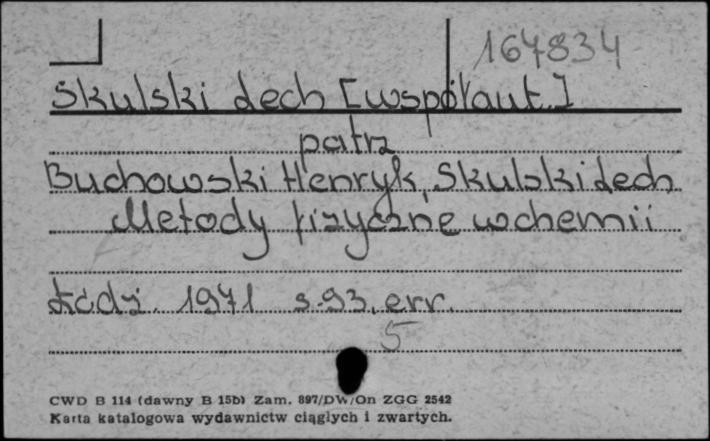 167834
Skulski Lech [współaut.]
patrz
Buchowski Henryk, Skulski Lech
Metody fizyczne w chemii
Łódź. 1971 s. 93, err.
5
CWD B 114 (dawny B 15b) Zam. 897/DW/On ZGG 2542
Karta katalogowa wydawnictw ciągłych i zwartych.